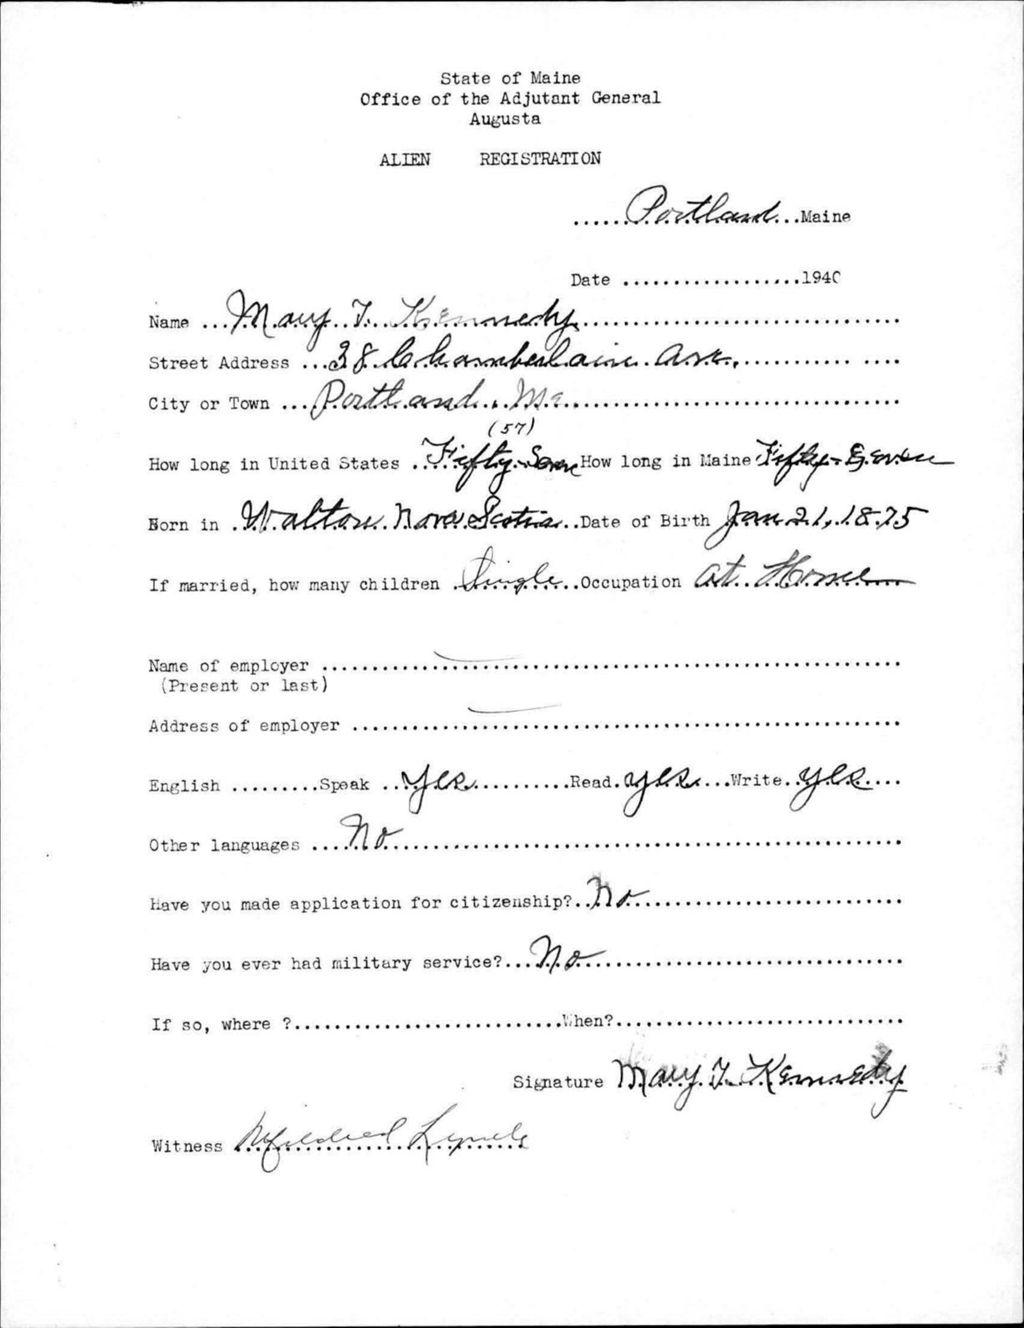 State of Maine
Office of the Adjutant General
Augusta
ALIEN REGISTRATION
......Portland...Maine
Date ..................1940
Name ...Mary T. Kennedy................................
Street Address ...38 Chamberlain Ave................
City or Town ...Portland, Me................................
(57)
How long in United States ..Fifty-Seven How long in Maine Fifty-Seven
Born in .Walton, Nova Scotia..Date of Birth Jan 21, 1875
If married, how many children .Single..Occupation At Home
Name of employer ..........................................................
(Present or last)
Address of employer .......................................................
English .........Speak ..Yes..........Read.yes...Write..yes....
Other languages ....No....................................................
Have you made application for citizenship?..No..........................
Have you ever had military service?...No..............................
If so, where ?...........................When?.............................
Signature Mary T. Kennedy
Witness Mildred Lynch